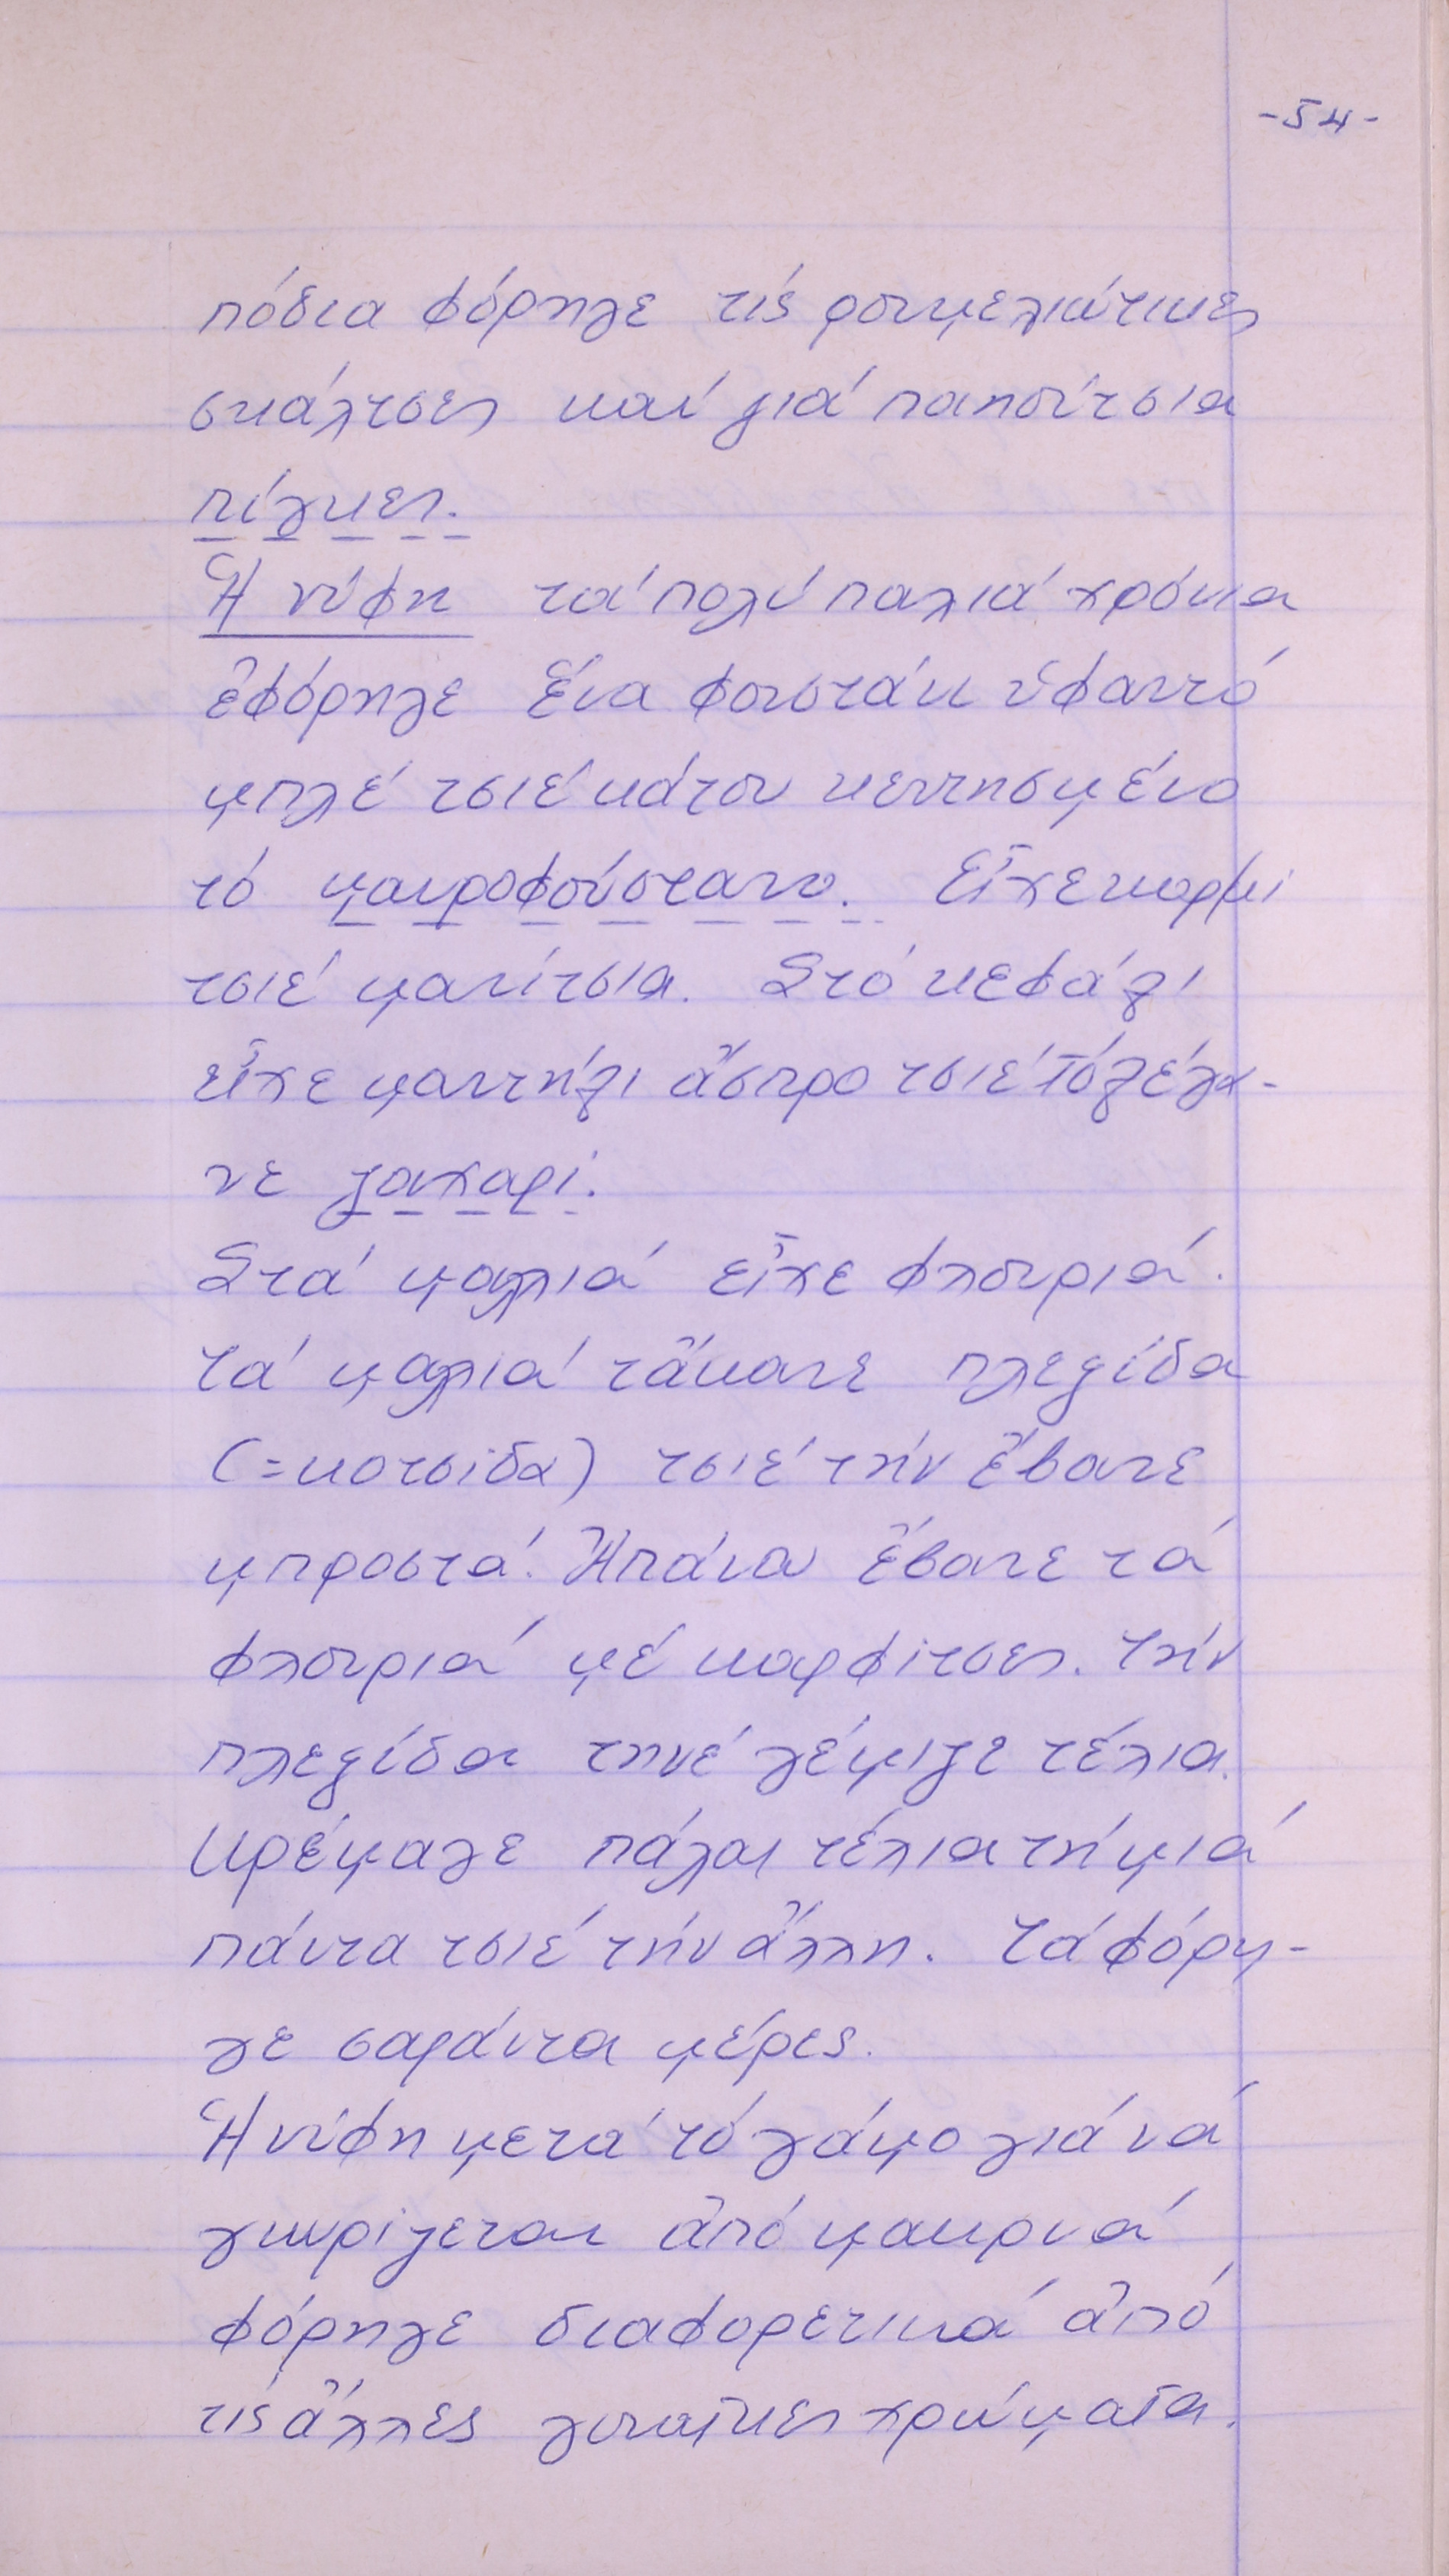 -54-
πόδια φόρηγε τίς ρουμελιώτικες
σκάλτσες καί γιά παπούτσια
πίγκες.
Ἡ νύφη τά πολύ παλιά χρόνια
ἐφόρηγε ἕνα φουστάνι ὑφαντό
μπλέ τσιέ κάτου κεντησμένο
τό μαυροφούστανο. Εἶχε κορμί
τσιέ μανίτσια. Στό κεφάλι
εἶχε μαντήλι ἄσπρο τσιέ τό λέγα-
νε ζαχαρί.
Στά μαλλιά εἶχε φλουριά.
Τά μαλλιά τἄκανε πλεξίδα
(=κοτσίδα) τσιέ τήν ἔβανε
μπροστά. Ἀπάνω ἔβανε τά
φλουριά μέ καρφίτσες. Τήν
πλεξίδα τηνέ γέμιζε τέλια.
Κρέμαγε πάλαι τέλια τή μιά
πάντα τσιέ τήν ἄλλη. Τά φόρη-
γε σαράντα μέρες.
Ἡ νύφη μετά τό γάμο γιά νά
γνωρίζεται ἀπό μακρυά
φόρηγε διαφορετικά ἀπό
τίς ἄλλες γυναῖκες χρώματα.